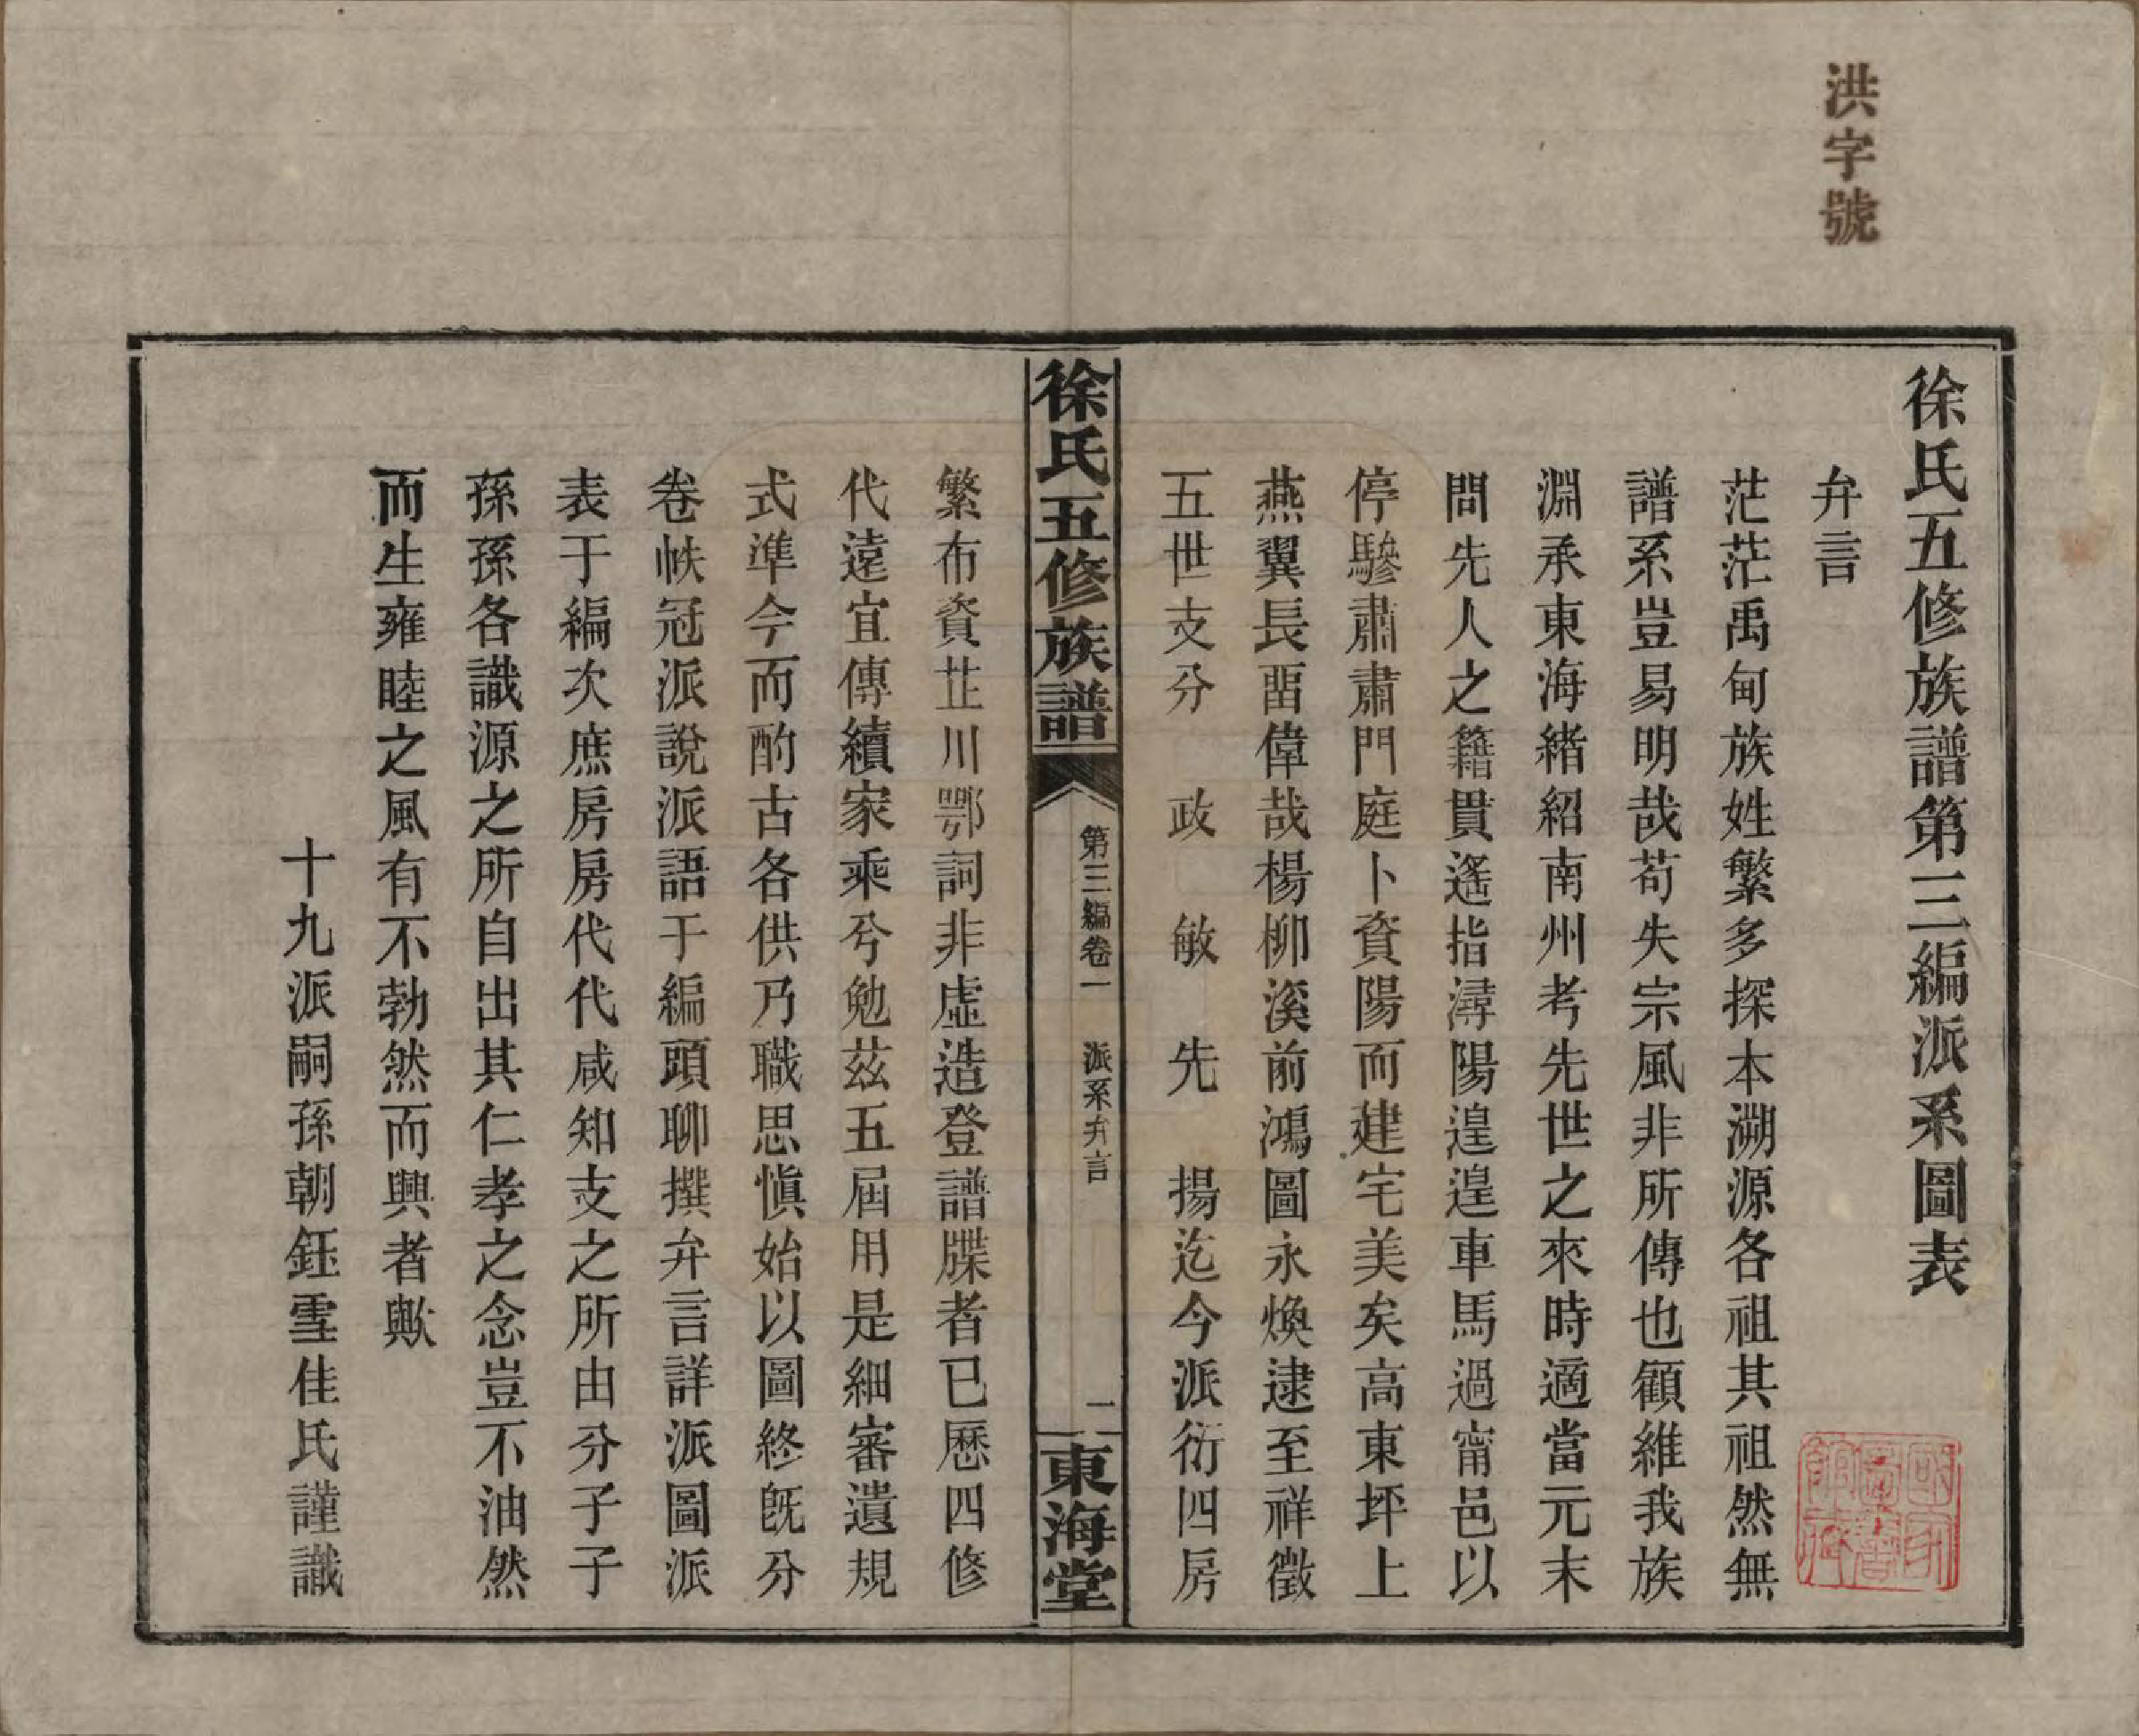 洪字號
徐氏五修族譜第三編派系圖表
弁言
茫茫禹甸族姓繁多探本溯源各祖其祖然無
譜系豈易明哉苟失宗風非所傳也顧維我族
淵承東海緒紹南州考先世之來時適當元末
問先人之籍貫遙指潯陽遑遑車馬過甯邑以
停驂肅肅門庭卜資陽而建宅美矣高東坪上
燕翼長畱偉哉楊柳溪前鴻圖永煥逮至祥徵
五世支分政敏先揚迄今派衍四房
徐氏五修族譜
第三編卷一 派系弁言
一
東海堂
繁布資茈川鄂詞非虛造登譜牒者已歷四修
代遠宜傳續家乘兮勉茲五屆用是細審遺規
式準今而酌古各供乃職思愼始以圖終旣分
卷帙冠派說派語于編頭聊撰弁言詳派圖派
表于編次庶房房代代咸知支之所由分子子
孫孫各識源之所自出其仁孝之念豈不油然
而生雍睦之風有不勃然而興者歟
十九派嗣孫朝鈺雪佳氏謹識
國家圖書館藏